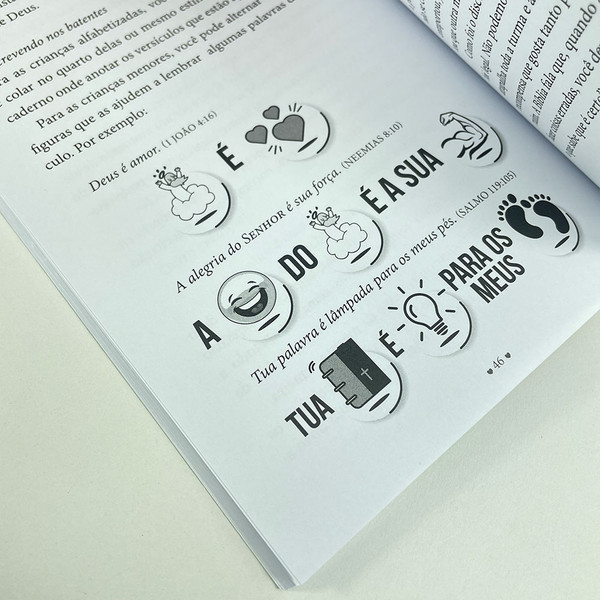 e Deus.
crevendo nos batentes
ra as crianças alfabetizadas, você
e colar no quarto delas ou mesmo estim
caderno onde anotar os versículos que estão
Para as crianças menores, você pode alternar
figuras que as ajudem a lembrar algumas palavras d
culo. Por exemplo:
Deus é amor. (1 JOÃO 4:16)
É
A alegria do SENHOR é sua força. (NEEMIAS 8:10)
A DO É A SUA
Tua palavra é lâmpada para os meus pés. (SALMO 119:105)
TUA É PARA OS
MEUS
46